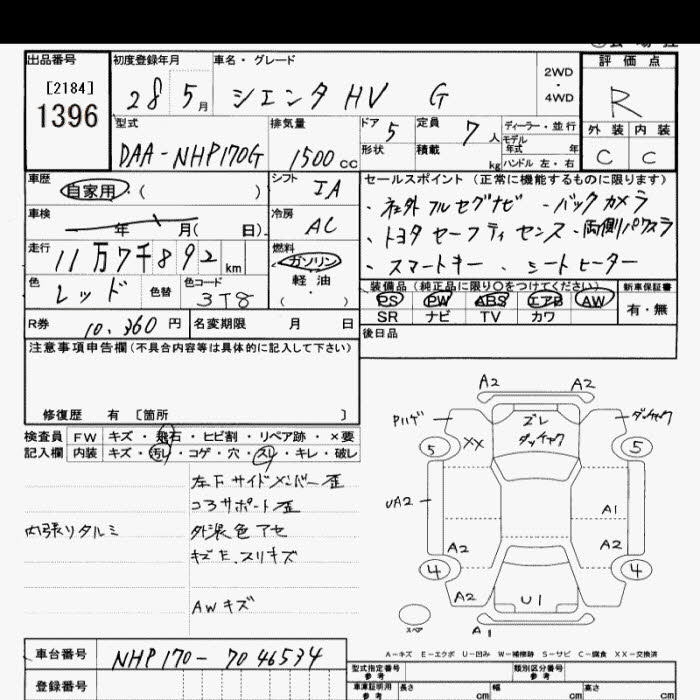 出品番号
[2184]
1396
初度登録年月
28 5月
車名・グレード
シエンタ HV G
2WD
・
4WD
評価点
R
外装 内装
C C
型式
DAA-NHP170G
排気量
1500cc
ドア 5
形状
定員 7人
積載 kg
ディーラー・並行
モデル年式 年
ハンドル 左・右
車歴
自家用・( )
シフト
IA
車検
年 月( 日)
冷房
AC
走行
11万7千892km
燃料
ガソリン
軽油
( )
色
レッド
色替
色コード
3T8
セールスポイント (正常に機能するものに限ります)
・社外フルセグナビ ・バックカメラ
・トヨタセーフティセンス ・両側パワスラ
・スマートキー ・シートヒーター
装備品(純正品に限り〇をつけてください)
PS PW ABS エアB AW
SR ナビ TV カワ
新車保証書
有・無
R券
10,360円
名変期限 月 日
後日品
注意事項申告欄(不具合内容等は具体的に記入して下さい)
修復歴 有 〔箇所 〕
検査員
記入欄
FW キズ・飛石・ヒビ割・リペア跡・×要
内装 キズ・汚レ・コゲ・穴・スレ・キレ・破レ
左Fサイドメンバー歪
コアサポート歪
内張リタルミ
外装色アセ
キズE、スリキズ
AWキズ
A2 A2
ズレ
XX
5 5
UA2
A1
A2 A2
4 4
A2
U1
スペア
A1
A-キズ E-エクボ U-凹み W-補修跡 S-サビ C-腐食 XX-交換済
車台番号
NHP170-7046534
登録番号
型式指定番号
参考
類別区分番号
参考
車庫証明用
参考
長さ cm 幅 cm 高さ cm